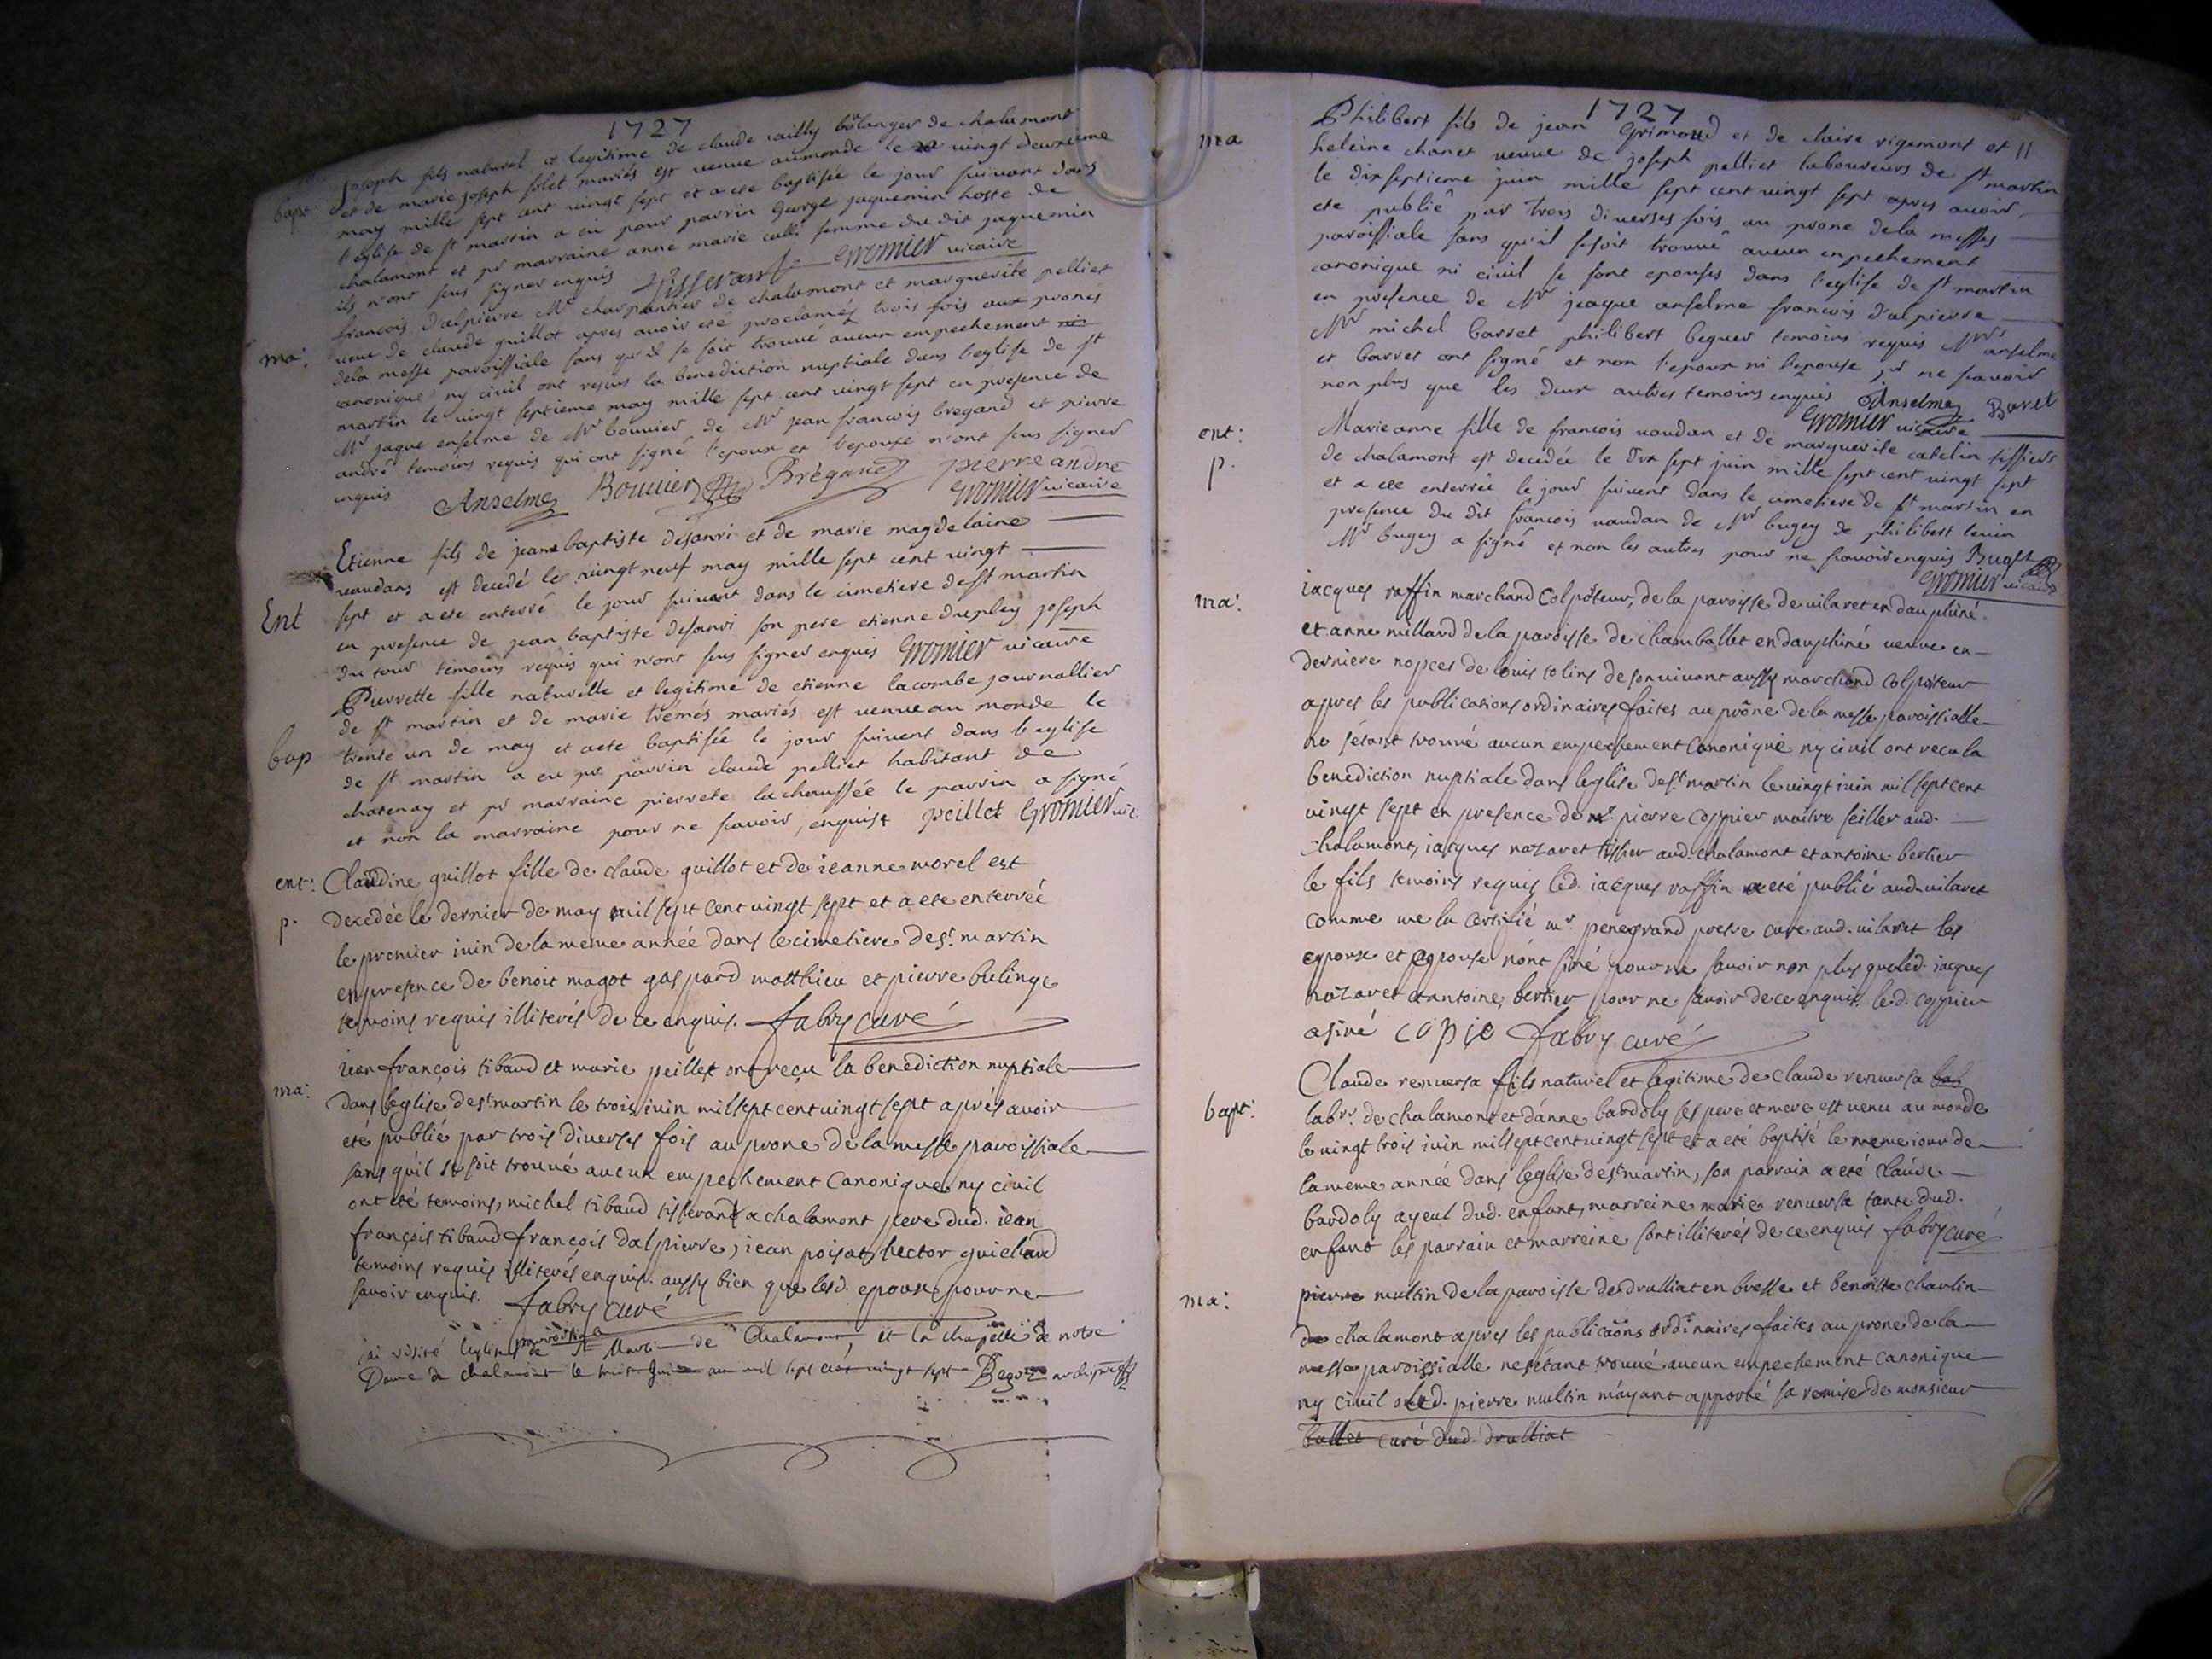 1727
Joseph fils naturel et legitime de claude vailly bolanger de chalamont
bapt: et de marie joseph folet mariés est venue aumonde le vingt deuxieme
may mille sept cent vingt sept et a ete baptisée le jour suivant dans
l'eglise de st martin a eu pour parrin George jaquemin hoste de
chalamont et pr marraine anne marie calli femme du dit jaquemin
ils n'ont seus signer enquis Gromier vicaire
francois d'alpierre Mr charpantier de chalamont et marguerite pelliet
ma: veuve de claude guillot apres avoir eté proclamés trois fois aux pronés
dela messe paroissiale sans qu'il se soit trouué aucun empechement
canonique ny civil ont resus la benediction nuptiale dans l'eglise de st
martin le vingt septieme may mille sept cent vingt sept en presence de
Mr jaque enselme de Mr bouvier de Mr jean francois bregand et pierre
andré temoins requis qui ont signé l'epoux et l'epouse n'ont seus signer
enquis Anselme Bouvier Brégand pierre andré
Gromier vicaire
Etienne fils de jeane baptiste desanvi et de marie magdelaine
vaudans est decedé le vingt neuf may mille sept cent vingt
Ent sept et a ete enterré le jour suivant dans le cimetiere de st martin
en presence de jean baptiste desanvi son pere etienne dupley joseph
du tour temoins requis qui n'ont seus signer enquis Gromier vicaire
Pierrette fille naturelle et legitime de etienne lacombe journallier
de st martin et de marie trémés mariés est venue au monde le
bap trente un de may et aete baptisée le jour suivent dans l'eglise
de st martin a eu pr parrin claude pelliet habitant de
chatenay et pr marraine pierrete lachaussée le parrin a signé
et non la marraine pour ne scavoir, enquist peillet Gromier vic:
ent: Claudine guillot fille de claude guillot et de ieanne morel est
p. decedée le dernier de may mil sept cent vingt sept et a ete enterrée
le premier iuin de la meme année dans le cimetiere de st. martin
en presence de benoit magot gaspard matthieu et pierre bulinge
temoins requis illiterés de ce enquis. fabry curé
iean françois tibaud et marie peillet ont reçu la benediction nuptiale
ma: dans l'eglise de st martin le trois iuin mil sept cent vingt sept aprés avoir
eté publié par trois diverses fois au prone de la messe paroissiale
sans qu'il se soit trouué aucun empechement canonique ny civil
ont eté temoins, michel tibaud tisserand a chalamont pere dud. iean
françois tibaud françois dalpierre, iean poisat, hector guichard
temoins requis illiterés enquis. aussy bien que lesd. epoux pour ne
savoir enquis. fabry curé
jai visité l'eglise parroissiale de St Martin de Chalamont et la chapelle de notre
Dame de chalamont le huit Juin mil sept cent vingt sept archipretre
1727
ma Philibert fils de jean Grimaud et de claire rigemont et
heleine chanet veuve de joseph pelliet laboureurs de st martin
le dix septieme juin mille sept cent vingt sept apres avoir
ete publié par trois diverses fois au prone dela messes
paroissiale sans qu'il se soit trouué aucun enpechement
canonique ni civil se sont epouses dans l'eglise de st martin
en presence de Mr jeaque anselme francois d'alpierre
Mr michel barret philibert beguet temoins requis Mrs anselme
et barret ont signé et non l'epoux ni l'epouse pr ne scavoir
non plus que les deux autres temoins enquis Anselme Baret
Gromier vicaire
ent: Marie anne fille de francois vaudan et de marguerite catelin tissiers
p. de chalamont est decedée le dix sept juin mille sept cent vingt sept
et a ete enterrée le jour suivent dans le cimetiere de st martin en
presence du dit francois vaudan de Mr bugey de philibert levin
Mr bugey a signé et non les autres pour ne scavoir enquis Bugey
Gromier vicaire
ma: iacques raffin marchand Colpoteur, de la paroisse de vilaret en dauphiné
et anne millard de la paroisse de chamballet en dauphiné veuve en
derniere nopces de louis tolins de son vivant aussy marchand Colpoteur
apres les publications ordinaires faites au prône de la messe paroissialle
ne sétant trouué aucun empechement canonique ny civil ont recu la
benediction nuptiale dans leglise de st. martin le vingt iuin mil sept cent
vingt sept en presence de mr. pierre coppier maitre seillier aud.
chalamont, iacques nazaret tissier aud. chalamont et antoine bertier
le fils temoins requis led. iacques raffin a eté publié aud. vilaret
comme me la certifié mr penegrand prestre curé aud. vilaret les
epoux et epouse nónt siné pour ne savoir non plus que led. iacques
nazaret et antoine bertier pour ne savoir de ce enquis. led. coppier
a siné copie fabry curé
Claude renversa fils naturel et legitime de claude renversa
bapt: labr. de chalamont et d'anne bardoly ses pere et mere est venu au monde
le vingt trois iuin mil sept cent vingt sept et a eté baptisé le meme iour de
la meme année dans leglise de st martin, son parrain a eté claude
bardoly ayeul dud. enfant, marreine marie renversa tante dud.
enfant les parrain et marreine sont illiterés de ce enquis fabry curé
ma: pierre multin de la paroisse de drulliat en bresse et benoite charlin
de chalamont apres les publicaõns ordinaires faites au prone de la
messe paroissialle ne sétant trouué aucun empechement canonique
ny civil led. pierre multin m'ayant apporté sa remise de monsieur
ballet curé dud. drulliat